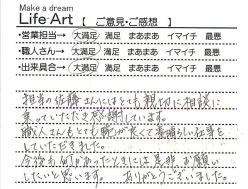 Make a dream
Life Art 【 ご意見・ご感想 】
・営業担当→ 大満足 満足 まあまあ イマイチ 最悪
・職人さん→ 大満足 満足 まあまあ イマイチ 最悪
・出来具合→ 大満足 満足 まあまあ イマイチ 最悪
担当の佐藤さんにはとても親切に相談に
乗っていただき感謝しています。
職人さんもとても腕が良くて素晴らしい仕事を
していただきました。
今後も何かあったときには是非お願い
したいと思います。 ありがとうございました。